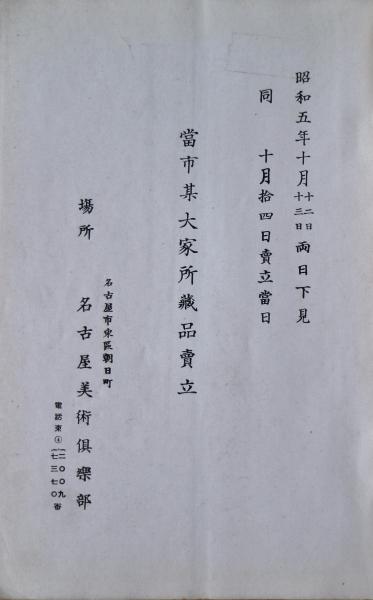 昭和五年十月十二日十三日両日下見
同 十月拾四日賣立當日
當市某大家所藏品賣立
名古屋市東區朝日町
場所 名古屋美術俱樂部
電話東④二〇〇九七三七〇番